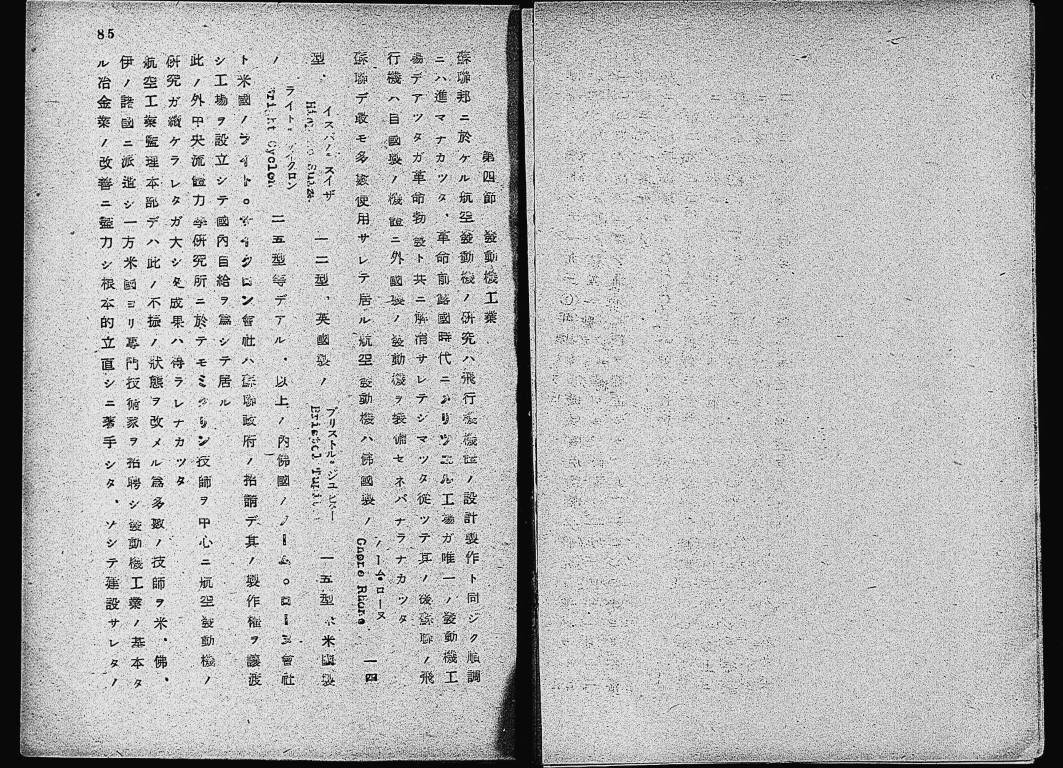 第四節 發動機工業
蘇聯邦ニ於ケル航空發動機ノ研究ハ飛行機機體ノ設計製作ト同ジク順調
ニハ進マナカツタ、革命前露國時代ニ 工場ガ唯一ノ發動機工
場デアツタガ革命勃發ト共ニ解消サレテシマツタ從ツテ其ノ後蘇聯ノ飛
行機ハ自國製ノ機體ニ外國製ノ發動機ヲ裝備セネバナラナカツタ
蘇聯デ最モ多數使用サレテ居ル航空發動機ハ佛國製ノ Gnome Rhone ノーム・ローヌ 一四
型、 イスパノ スイザ 一二型、英國製ノ ブリストル 一五型、米國製
ノ ライト サイクロン Wright Cyclon 二五型等デアル、以上ノ內佛國ノノーム。ローヌ會社
ト米國ノライト。サイクロン會社ハ蘇聯政府ノ招請デ其ノ製作權ヲ讓渡
シ工場ヲ設立シテ國內自給ヲ爲シテ居ル
此ノ外中央流體力學研究所ニ於テモミクリン技師ヲ中心ニ航空發動機ノ
研究ガ續ケラレタガ大シタ成果ハ得ラレナカツタ
航空工業監理本部デハ此ノ不振ノ狀態ヲ改メル爲多數ノ技師ヲ米、佛、
伊ノ諸國ニ派遣シ一方米國ヨリ專門技術家ヲ招聘シ發動機工業ノ基本タ
ル冶金業ノ改善ニ盡力シ根本的立直シニ著手シタ、ソシテ建設サレタノ
85